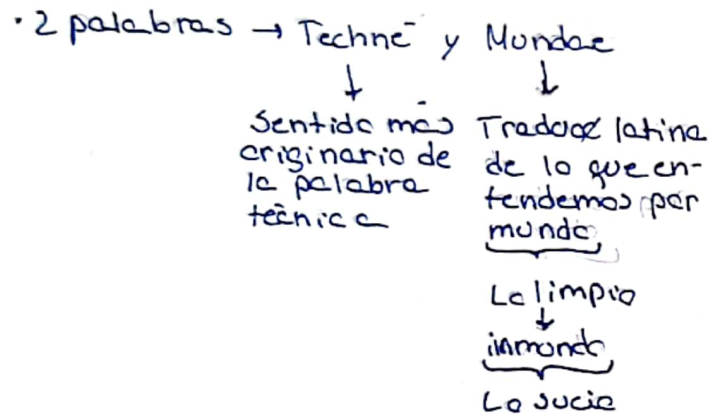 · 2 palabras → Technē y Mundae
↓ ↓
Sentido más
originario de
la palabra
técnica
Traducc latina
de lo que en-
tendemos por
mundo
Lo limpio
↓
inmundo
Lo sucio